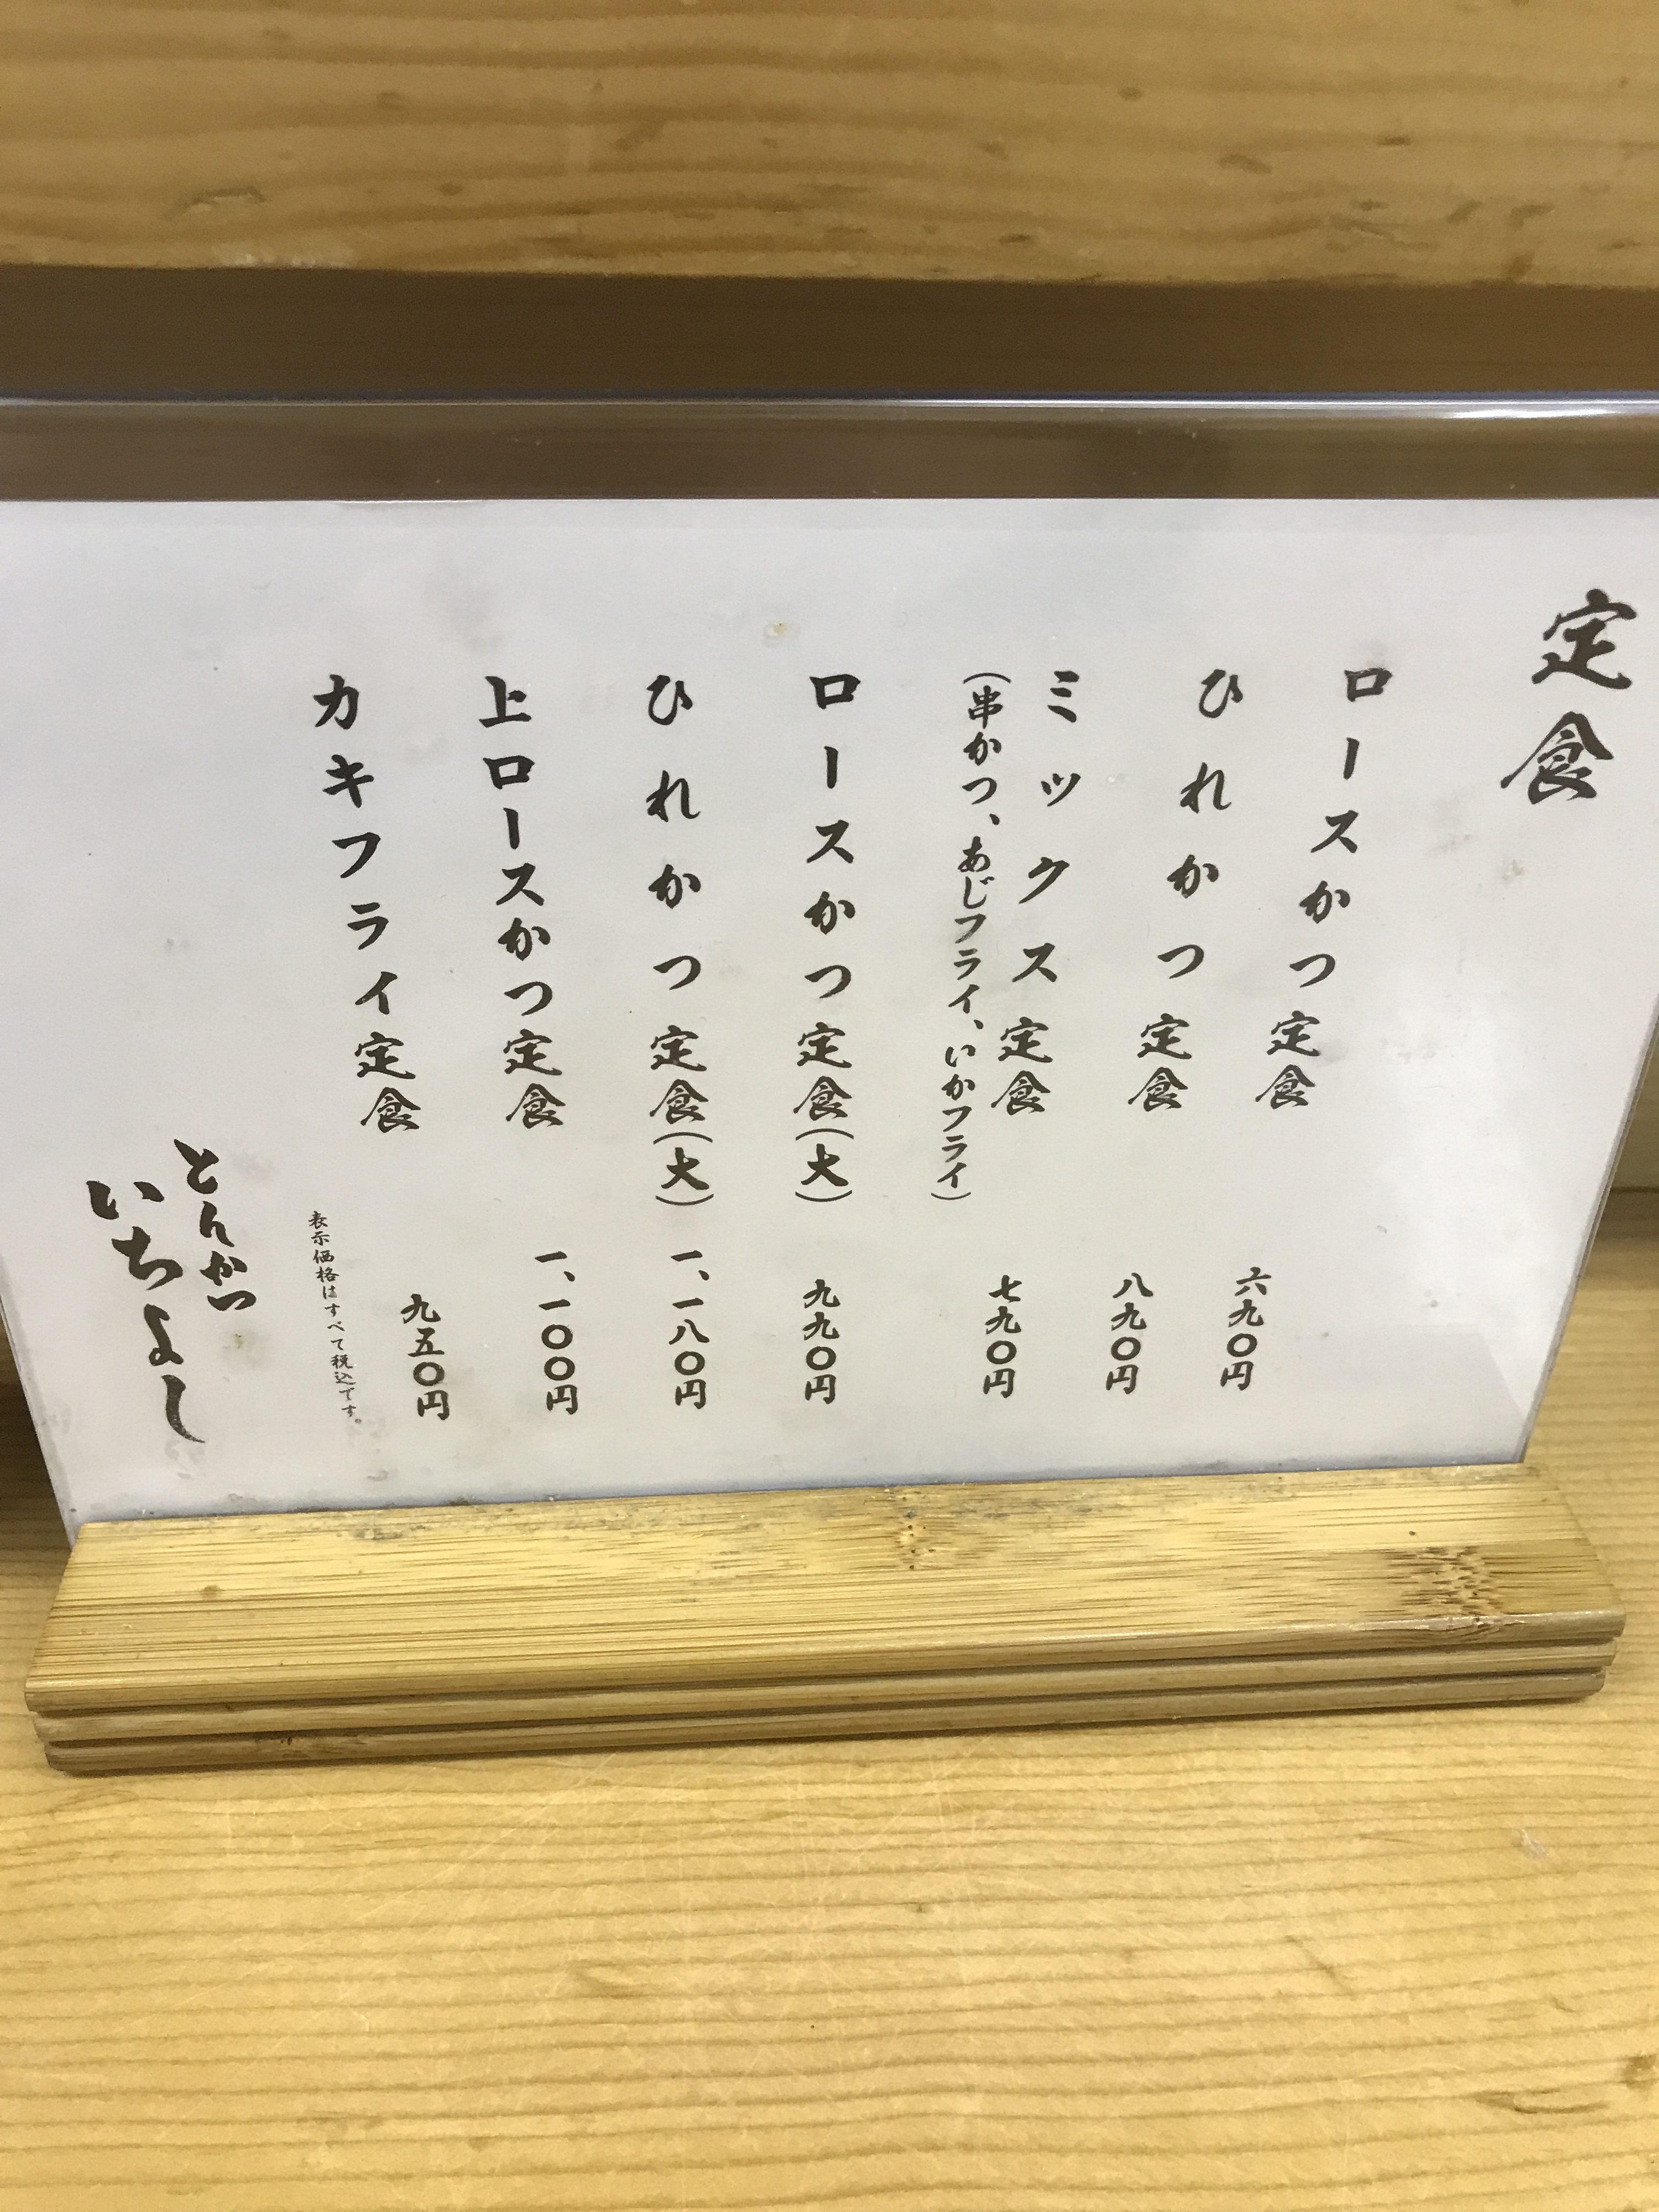 定食
ロースかつ定食 六九〇円
ひれかつ定食 八九〇円
ミックス定食 七九〇円
(串かつ、あじフライ、いかフライ)
ロースかつ定食(大) 九九〇円
ひれかつ定食(大) 一、一八〇円
上ロースかつ定食 一、一〇〇円
カキフライ定食 九五〇円
表示価格はすべて税込です。
とんかつ
いちよし